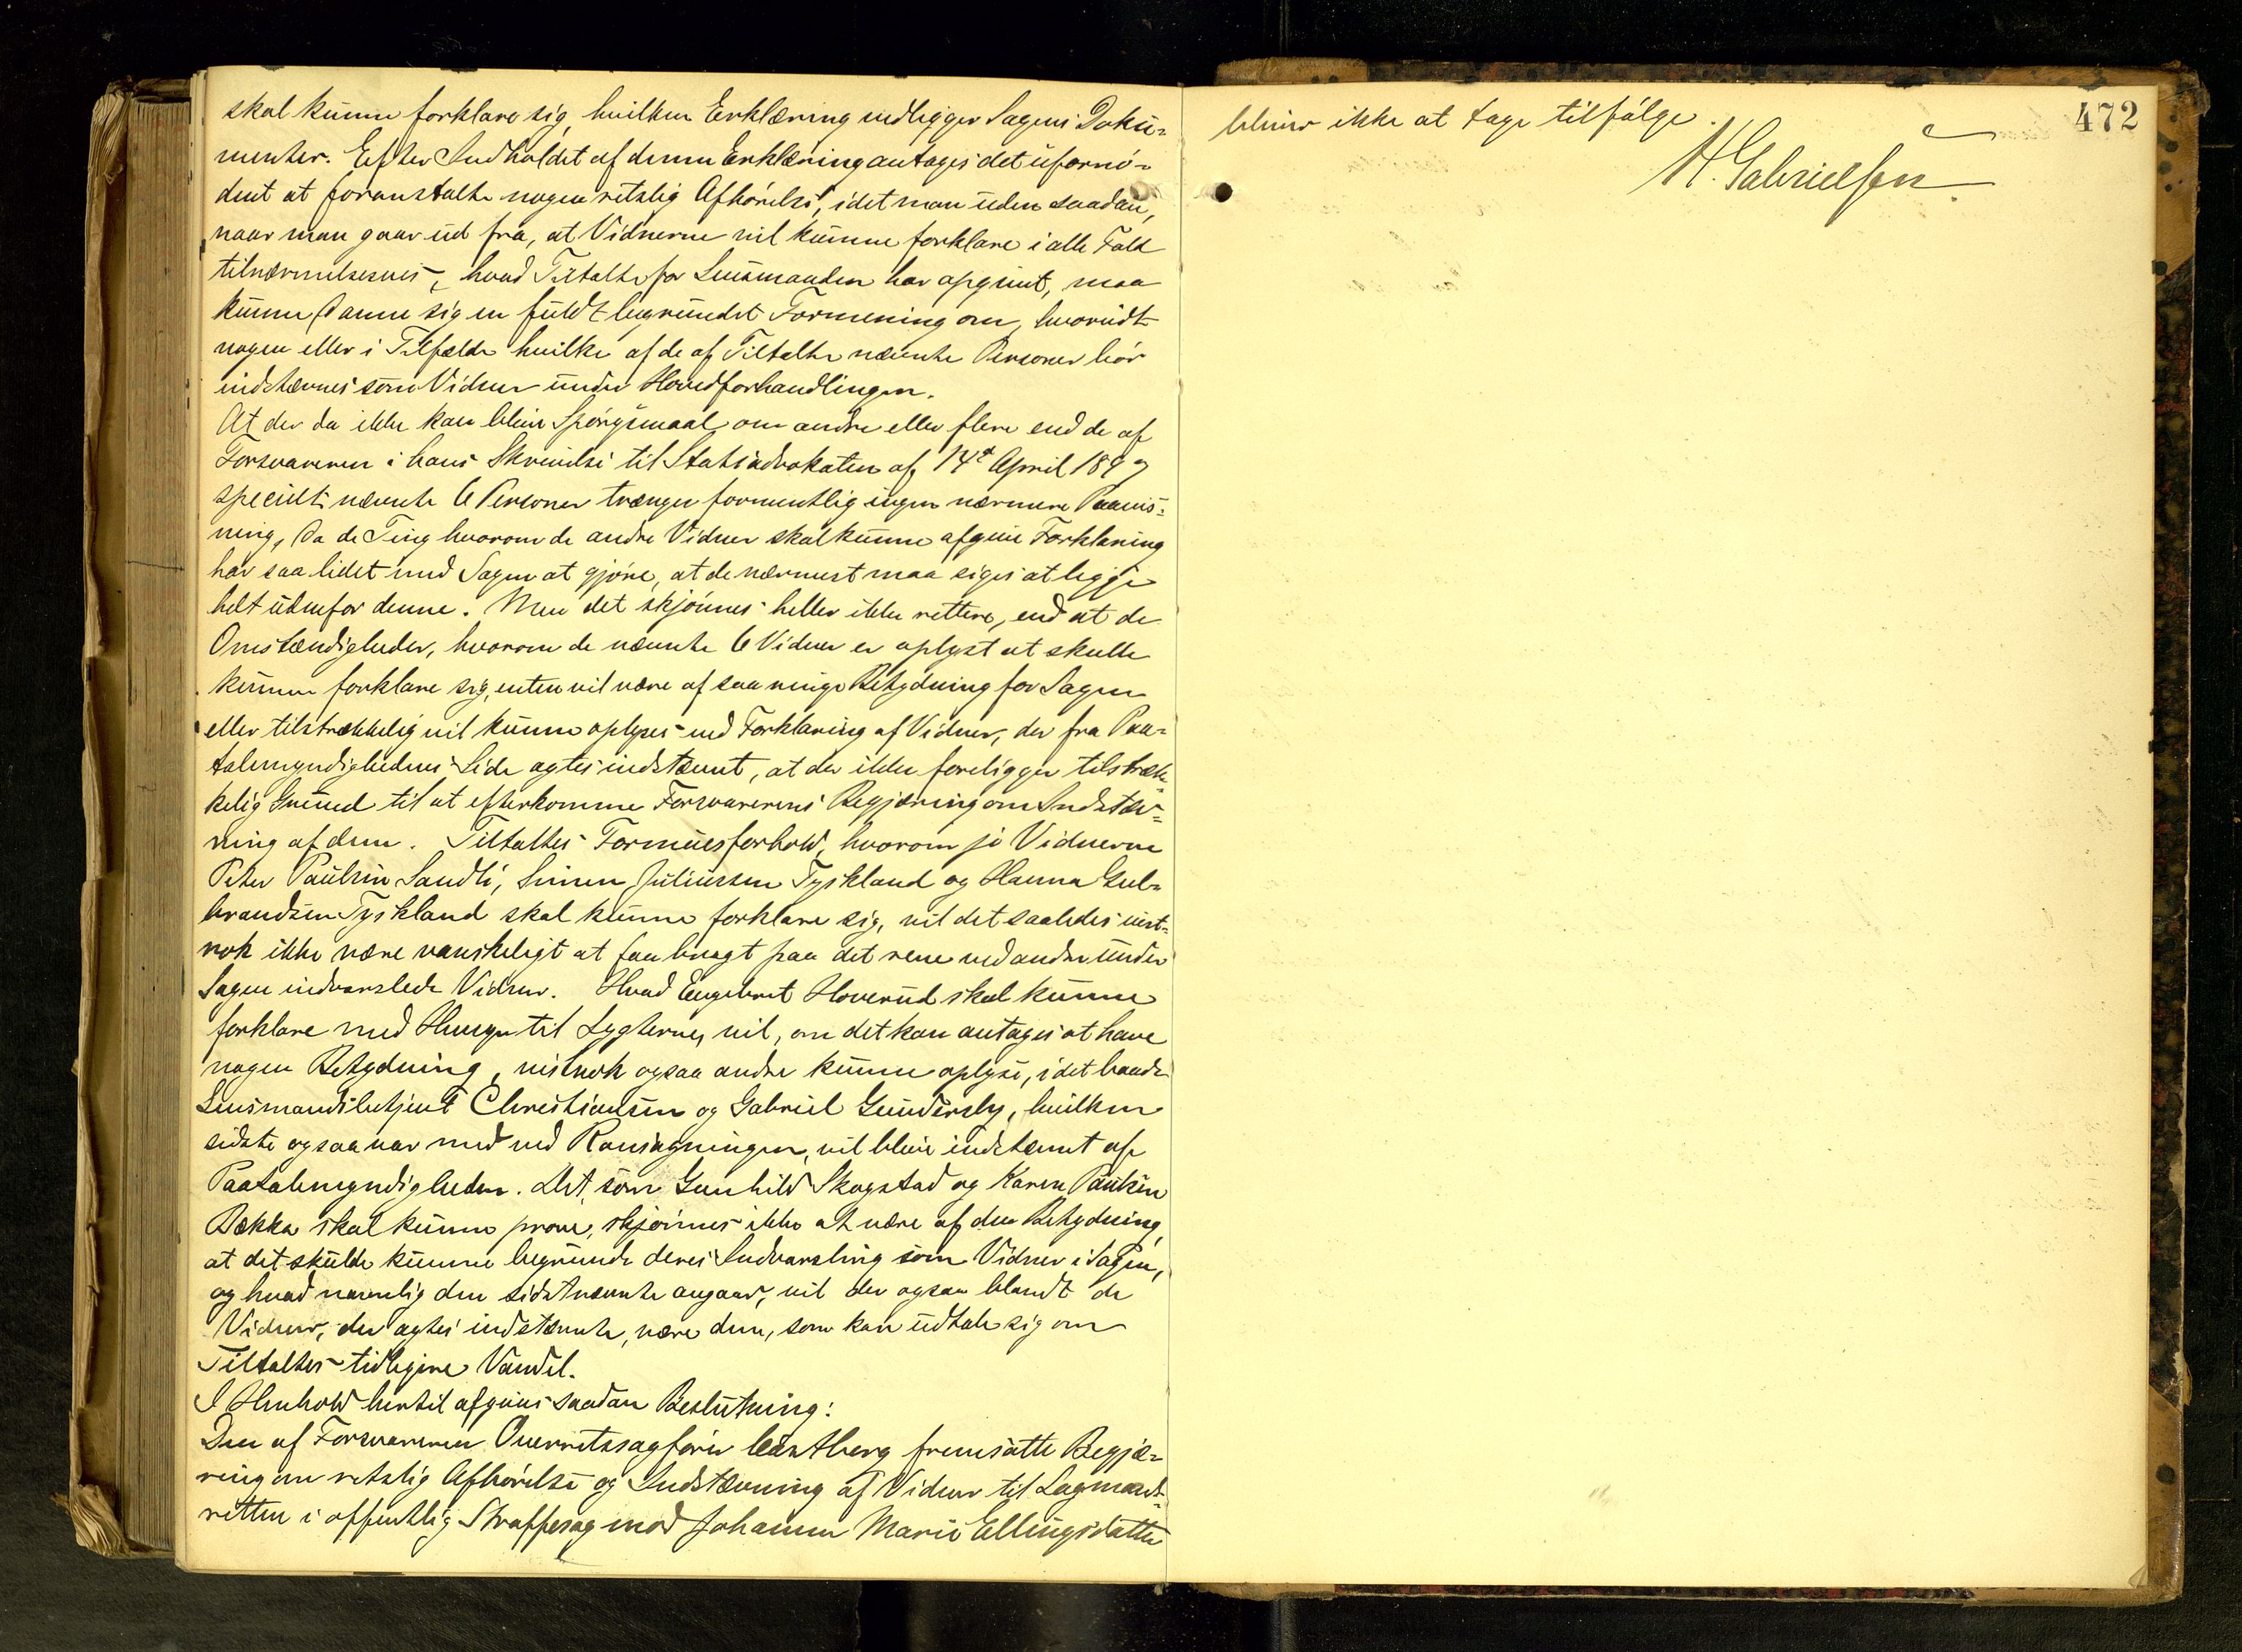 skal kunne forklare sig, hvilken Erklæring vedligger Sagens Doku-
menter. Efter Indholdet af denne Erklæring antages det ufornö-
dent at foranstalte nogen retslig Afhörelse, idet man uden saadan,
naar man gaar ud fra, at Vidnerne vil kunne forklare i alle Fald
tilnærmelsesvis, hvad Tiltalte for Lensmanden har opgivet, maa
kunne danne sig en fuldt begrundet Formening om, hvorvidt
nogen eller i Tilfælde hvilke af de af Tiltalte nævnte Personer bör
indstævnes som Vidner under Hovedforhandlingen.
At der da ikke kan blive Spörgsmaal om andre eller flere end de af
Forsvareren i hans Skrivelse til Statsadvokaten af 14de April 1897
specielt nævnte 6 Personer trænger formentlig ingen nærmere Paavis-
ning, da de Ting hvorom de andre Vidner skal kunne afgive Forklaring
har saa lidet med Sagen at gjöre, at de nærmest maa siges at ligge
helt udenfor denne. Men det skjönnes heller ikke rettere, end at de
Omstændigheder, hvorom de nævnte 6 Vidner er oplyst at skulle
kunne forklare sig, enten vil være af saa ringe Betydning for Sagen
eller tilstrækkelig vil kunne oplyses ved Forklaring af Vidner, der fra Paa-
talemyndighedens Side agtes indstævnt, at der ikke foreligger tilstræk-
kelig Grund til at efterkomme Forsvarerens Begjæring om Indstæv-
ning af dem. Tiltaltes Formuesforhold, hvorom jo Vidnerne
Peter Paulsen Sandli, Simen Juliussen Tyskland og Hanna Gul-
brandsen Tyskland skal kunne forklare sig, vil det saaledes vist-
nok ikke være vanskeligt at faa bragt paa det rene ved andre under
Sagen indvarslede Vidner. Hvad Engebret Hoverud skal kunne
forklare med Hensyn til Lygterne, vil, om det kan antages at have
nogen Betydning, vistnok ogsaa andre kunne oplyse, idet baade
Lensmandsbetjent Christiansen og Gabriel Gundersby, hvilken
sidste ogsaa var med ved Ransagningen, vil blive indstævnt af
Paatalemyndigheden. Det, som Gunhild Skogstad og Karen Paulsen
Bækka skal kunne prove, skjönnes ikke at være af den Betydning,
at det skulde kunne begrunde deres Indvarsling som Vidner i Sagen,
og hvad navnlig den sidstnævnte angaar, vil der ogsaa blandt de
Vidner, der agtes indstævnte, være dem, som kan udtale sig om
Tiltaltes tidligere Vandel.
I Henhold hertil afgives saadan Beslutning:
Den af Forsvareren Overretssagförer Castberg fremsatte Begjæ-
ring om retslig Afhörelse og Indstævning af Vidner til Lagmands-
retten i offentlig Straffesag mod Johanne Marie Ellingsdatter
472
bliver ikke at tage tilfölge.
H. Gabrielsen